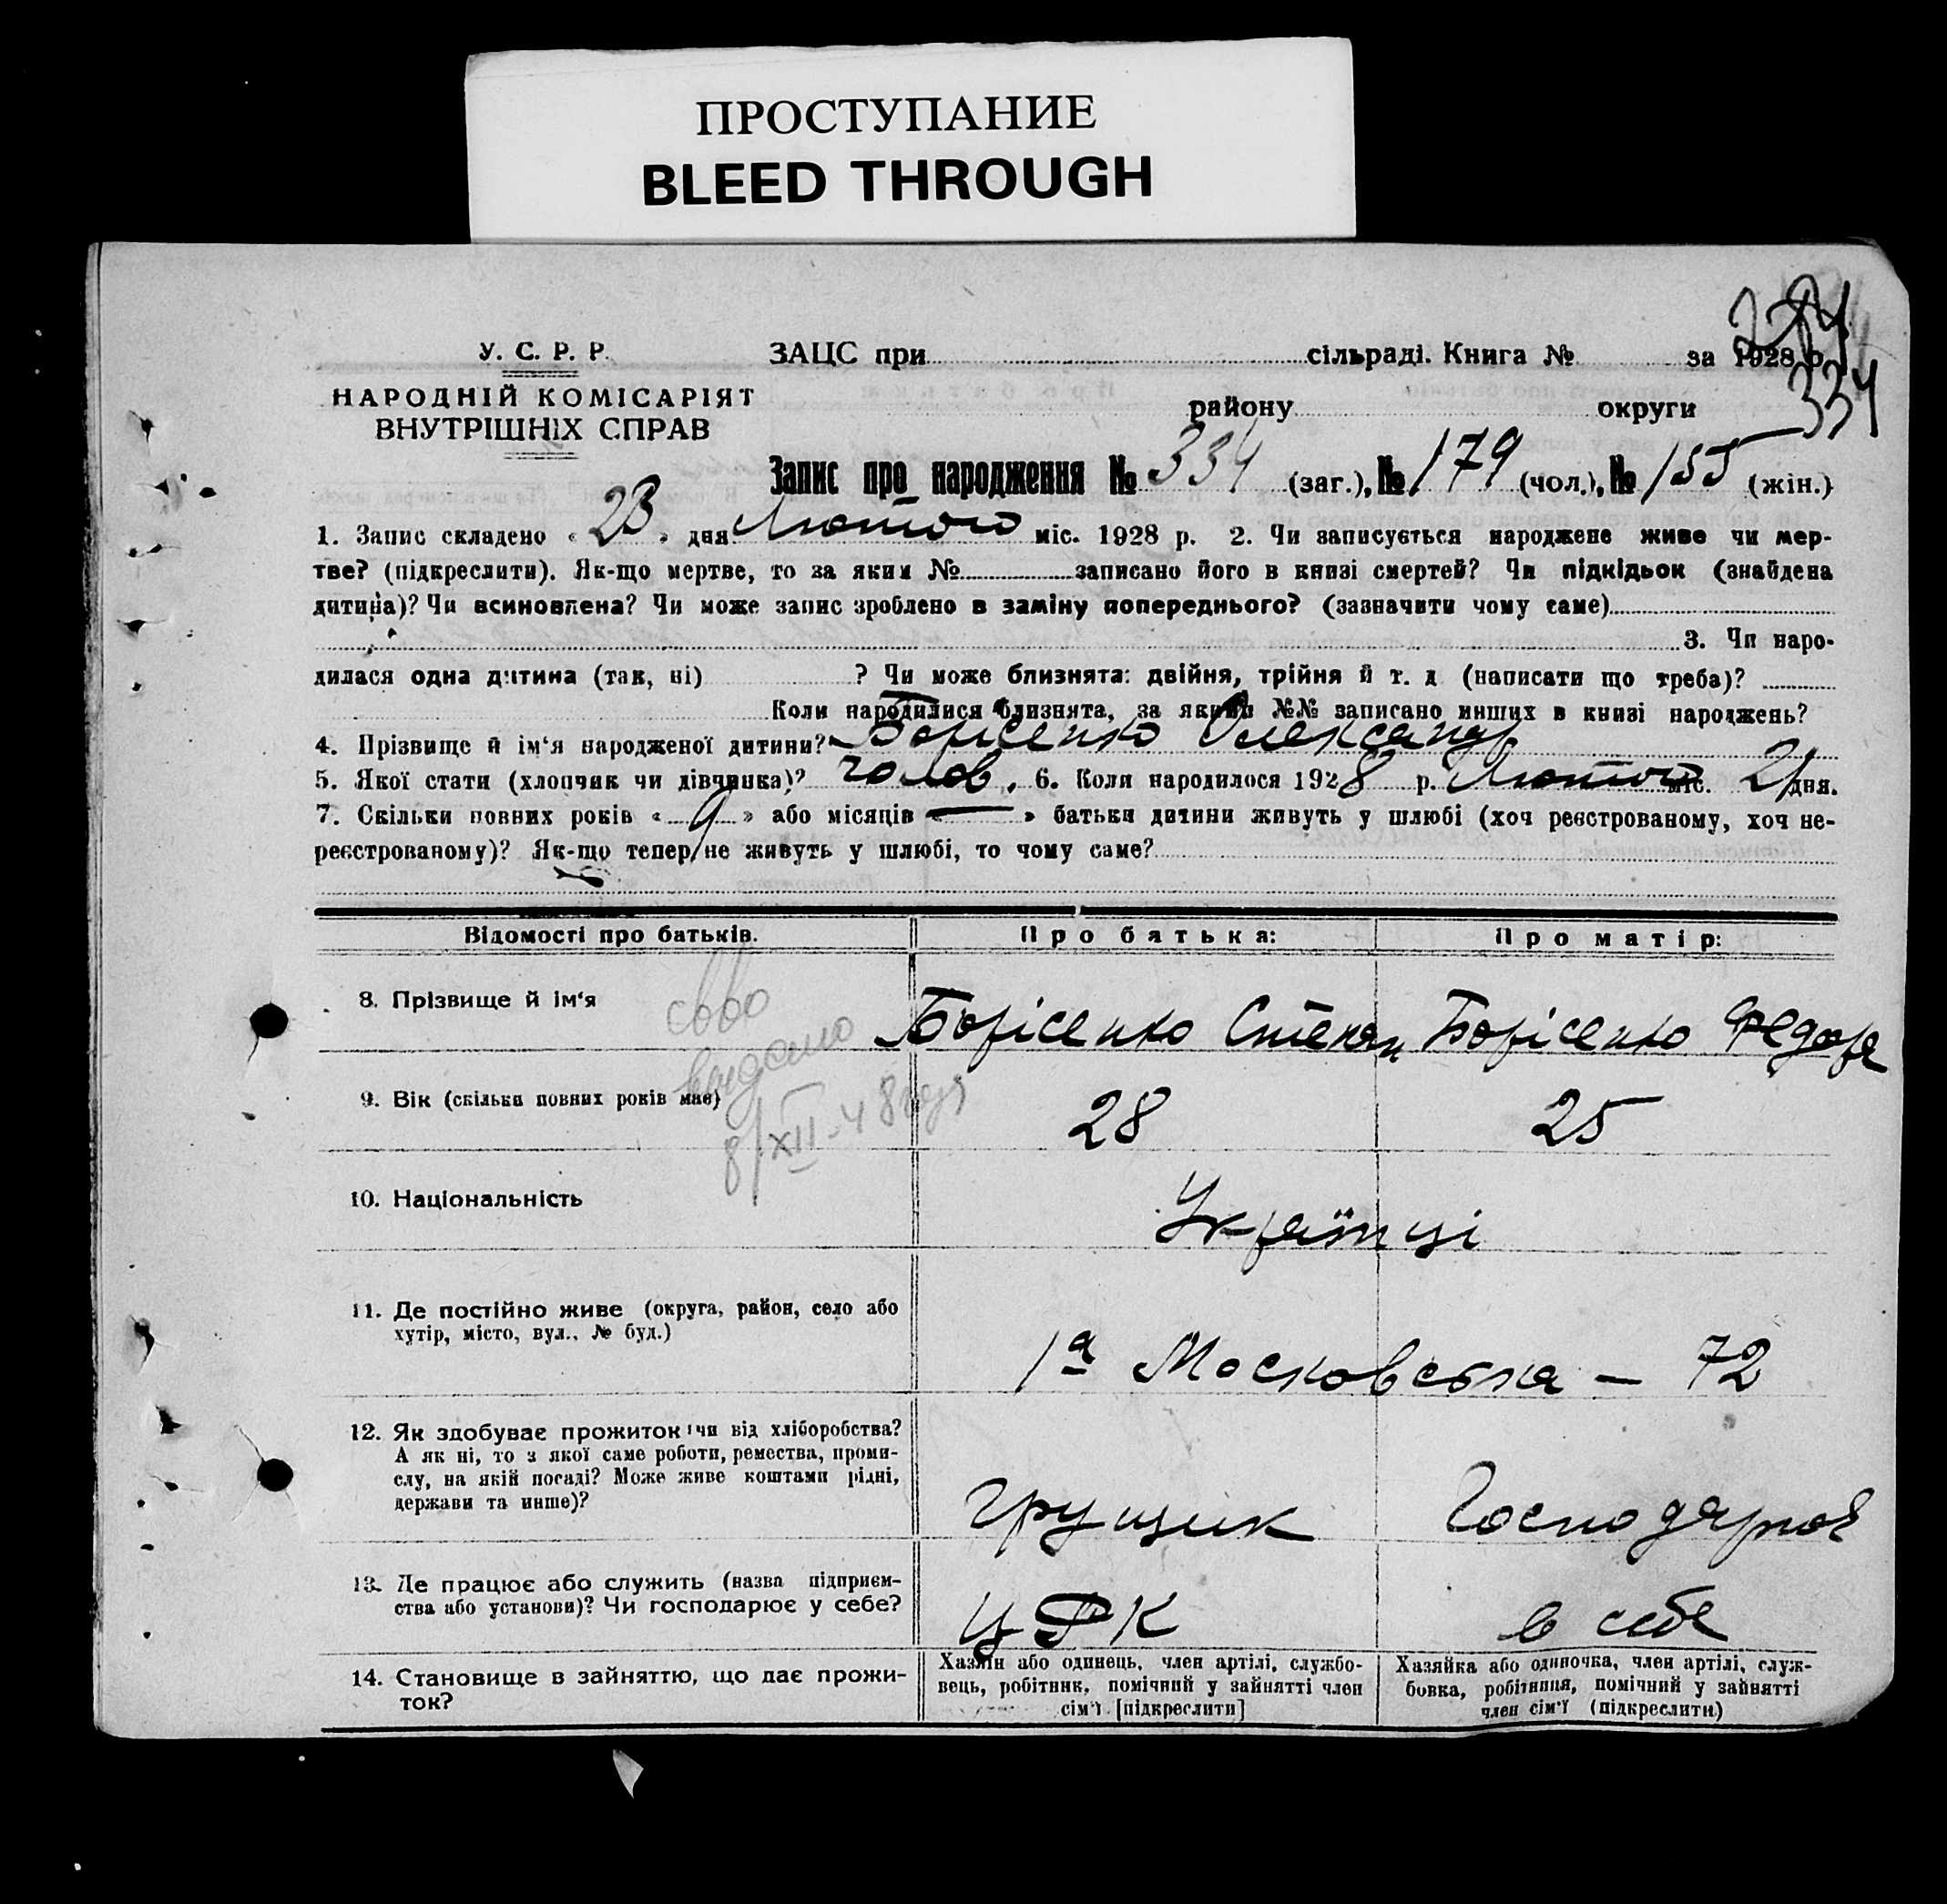 ПРОСТУПАНИЕ
BLEED THROUGH
334
У. С. Р. Р.
ЗАЦС при сільраді. Книга № за 1928 р.
НАРОДНІЙ КОМІСАРІЯТ
ВНУТРІШНІХ СПРАВ
району округи
Запис про народження № 334 (заг.), № 179 (чол.), № 155 (жін.)
1. Запис складено « 23 » дня Лютого міс. 1928 р. 2. Чи записується народжене живе чи мер-
тве? (підкреслити). Як-що мертве, то за яким № записано його в книзі смертей? Чи підкідьок (знайдена
дитина)? Чи всиновлена? Чи може запис зроблено в заміну попереднього? (зазначити чому саме)
3. Чи наро-
дилася одна дитина (так, ні) ? Чи може близнята: двійня, трійня й т. д. (написати що треба)?
Коли народилися близнята, за якими №№ записано инших в книзі народжень?
4. Прізвище й ім‘я народженої дитини? Борісенко Олександр
5. Якої стати (хлопчик чи дівчинка)? чолов. 6. Коли народилося 1928 р. Лютого міс. 21 дня.
7. Скільки повних років « 9 » або місяців « — » батьки дитини живуть у шлюбі (хоч реєстрованому, хоч не-
реєстрованому)? Як-що тепер не живуть у шлюбі, то чому саме?
Відомості про батьків. Про батька: Про матір:
8. Прізвище й ім‘я Борісенко Степан Борісенко Федора
9. Вік (скільки повних років має) 28 25
8/XII-48 года
10. Національність Українці
11. Де постійно живе (округа, район, село або
хутір, місто, вул., № буд.)
1а Московська – 72
12. Як здобуває прожиток: чи від хліборобства?
А як ні, то з якої саме роботи, ремества, проми-
слу, на якій посаді? Може живе коштами рідні,
держави та инше)?
Грущик Господарює
13. Де працює або служить (назва підприєм-
ства або установи)? Чи господарює у себе?
ЦРК в себе
14. Становище в зайняттю, що дає прожи-
ток?
Хазяїн або одинець, член артілі, службо-
вець, робітник, помічний у зайнятті член
сім‘ї [підкреслити]
Хазяйка або одиночка, член артілі, служ-
бовка, робітниця, помічний у зайнятті
член сім‘ї (підкреслити)